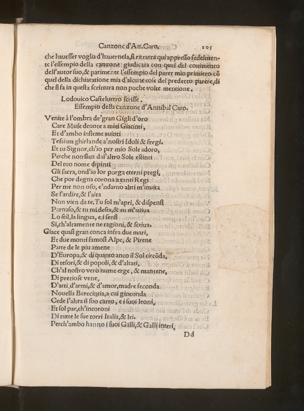 Canzone d'An. Caro. 105
che hauesser voglia d'hauernela, si ritrarrà qui appresso fedelmente
l'essempio della canzone giudicata con quel del comimento
dell'autor suo, & parimente l'essempio del parer mio primiero cō
quel della dichiaratione mia d'alcune cose del predetto parere, di
che si fa in quella scrittura non poche volte mentione.
Lodouico Casteluetro scrisse.
Essempio della canzone d'Annibal Caro.
Venite à l'ombra de' gran Gigli d'oro
Care Muse deuote a miei Giacinti,
Et d'ambo insieme auinti
Tessiam ghirlande a' nostri Idoli, & fregi.
Et tu Signor, ch'io per mio Sole adoro,
Perche non sian da l'altro Sole estinti
Del tuo nome dipinti
Gli sacra, ond'io lor porga eterni pregi,
Che por degna corona a tanti Regi
Per me non oso, e'ndarno altri m'inuita
Se l'ardire, & l'aita
Non vien da te. Tu sol m'apri, & dispensi
Parnaso, & tu mi desta, & tu m'auiua
Lo stil, la lingua, e i sensi
Sì, ch'altamente ne ragioni, & scriua.
Giace quasi gran conca infra due mari,
Et due monti famosi Alpe, & Pirene
Parte de le più amene
D'Europa, & di quanto anco il Sol circōda,
Di tesori, & di popoli, & d'altari,
Ch'al nostro vero nume erge, & mantene,
Di preciose vene,
D'arti, d'armi, & d'amor, madre feconda.
Nouella Berecintia, a cui gioconda
Cede l'altra il suo carro, e i suoi leoni,
Et sol par, ch'incoroni
Di tutte le sue torri Italia, & lei.
Perch'ambo hanno i suoi Galli, & Galli interi,
Dd